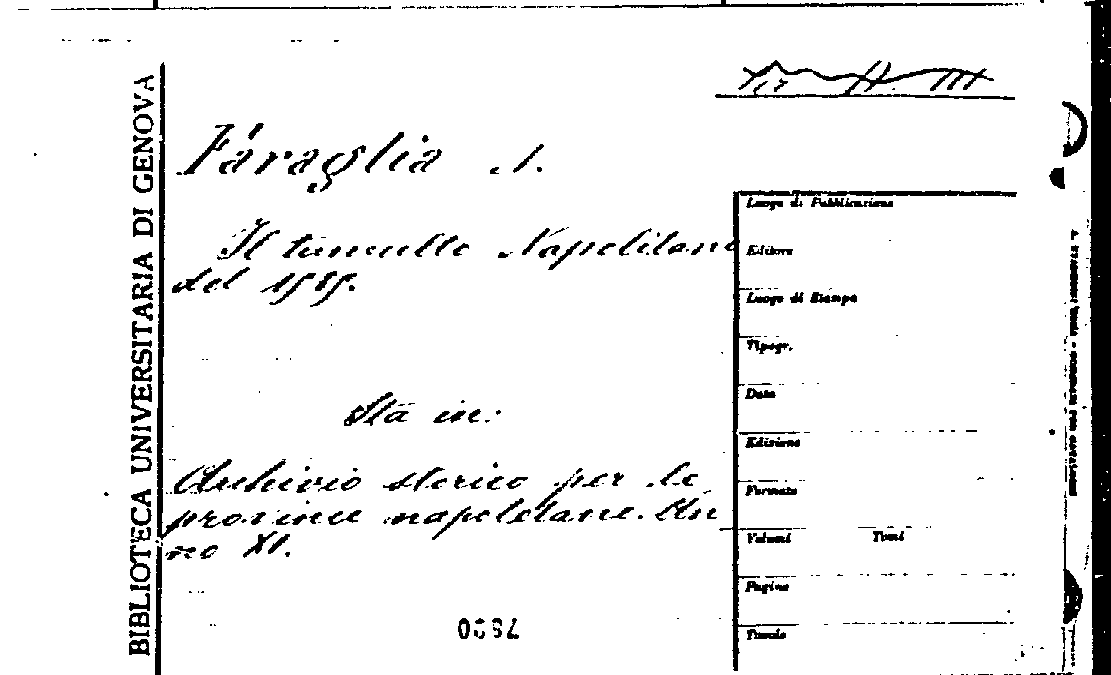 BIBLIOTECA UNIVERSITARIA DI GENOVA
Faraglia N.
Il tumulto Napolitano
del 1585.
Sta in:
Archivio storico per le
province napoletane. An
no XI.
Luogo di Pubblicazione
Editore
Luogo di Stampa
Tipogr.
Data
Edizione
Formato
Volumi Tomi
Pagine
Tavole